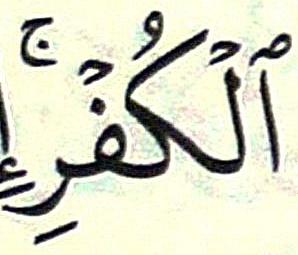 ٱلْكُفْرِۚ